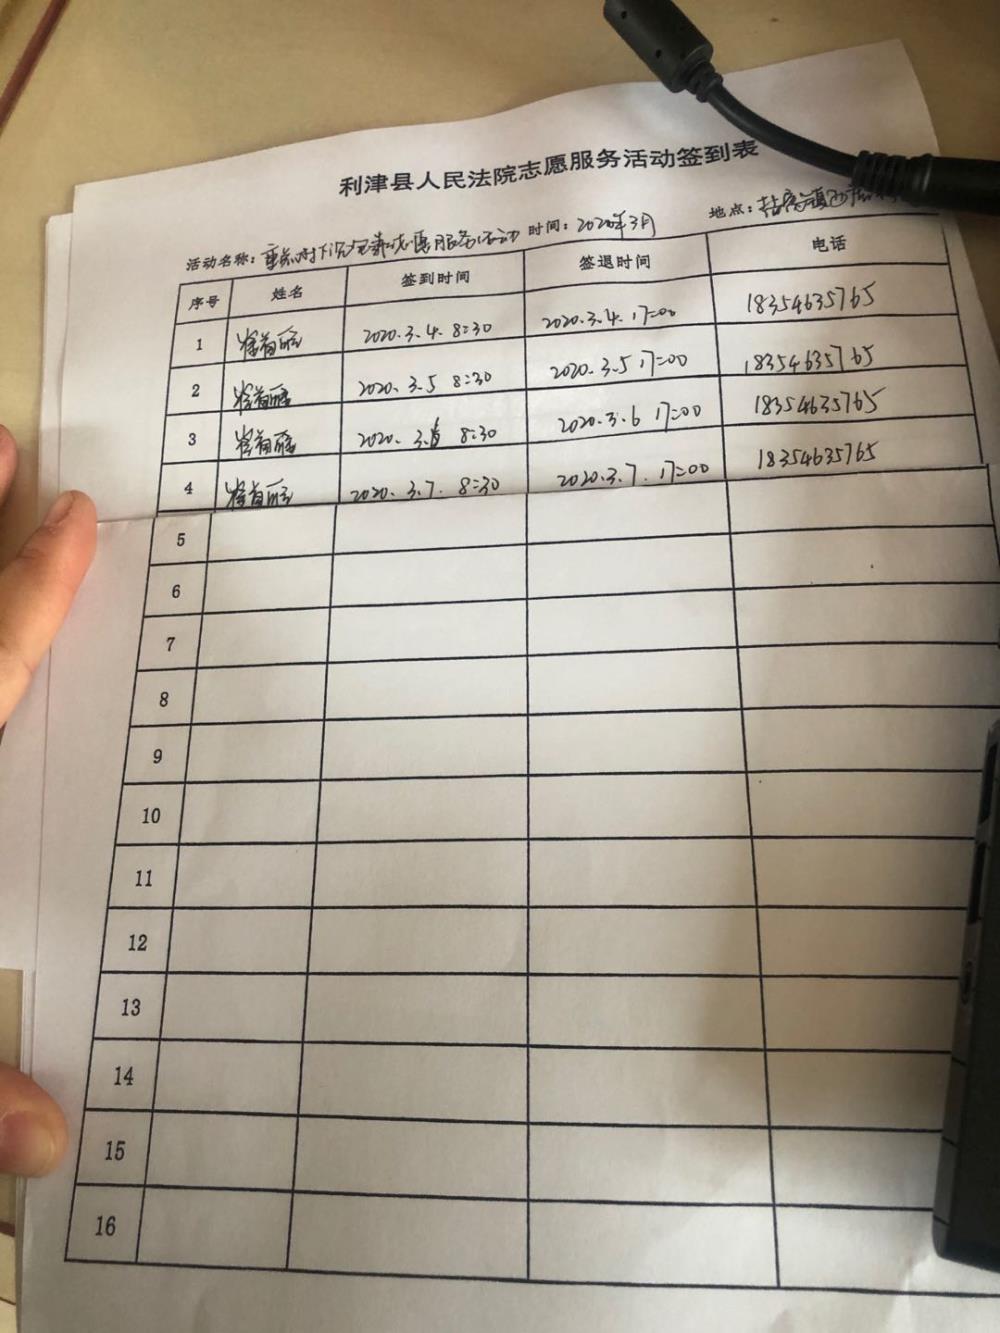 利津县人民法院志愿服务活动签到表
活动名称：重点村下沉 志愿服务活动 时间：2020年3月 地点：
序号 姓名 签到时间 签退时间 电话
1 2020.3.4. 8:30 2020.3.4. 17:00 18354635765
2 2020.3.5 8:30 2020.3.5 17:00 18354635765
3 2020.3.6 8:30 2020.3.6 17:00 18354635765
4 2020.3.7. 8:30 2020.3.7. 17:00 18354635765
5
6
7
8
9
10
11
12
13
14
15
16